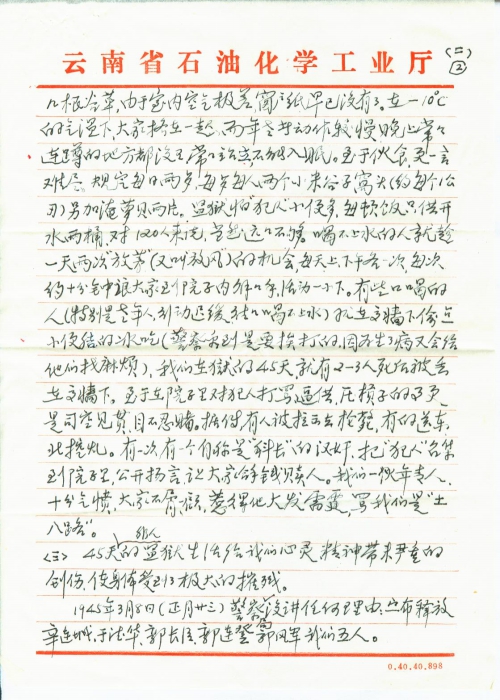 云南省石油化学工业厅
(二)
②
几根冷草,由于室内空气极差,窗户纸早已没有了。在-10℃
的气温下,大家挤在一起,而年老者动作较慢晚上常常
连蹲的地方都没有常常站立不能入眠。至于伙食,更一言
难尽。规定每日两餐,每餐每人两个小米谷子窝头(约每个1公
两)另加淹萝贝两片。监狱怕"犯人"小便多,每顿饭只供开
水两桶,对120人来说,当然远远不够。喝不上水的人就趁
一天两次"放茅"(又叫放风)的机会,每天上、下午各一次,每次
约十分钟狼大家到院子内
的人(特别是老年人,行动迟缓往往喝不上水)就在墙下偷
小便结的冰吃(警察看到是要挨打的,因为生了病又会给
他们找麻烦),我们在狱的45天就有2-3人死后被丢
在墙下。至于在院子里对犯人打骂逼供、压杠子的更
是司空见贯,目不忍睹。据传有人被拉出去枪毙,有的送东
北挖煤。有一次有一个自称是"科长"的汉奸,把"犯人"召集
到院子里,公开扬言,让大家拿钱赎人。我们一伙年青人
十分气愤,大家不屑一顾,惹得他大发雷霆,骂我们是"土
八路"。
<三> 45天的监狱生活给我们心灵精神带来严重的
创伤,使身体受到了极大的摧残。
1945年3月8日(正月廿三)警察没讲任何理由,宣布释放
辛连城、于法华、郭长信、郭连登、郭风军我们五人。
0.40.40.898